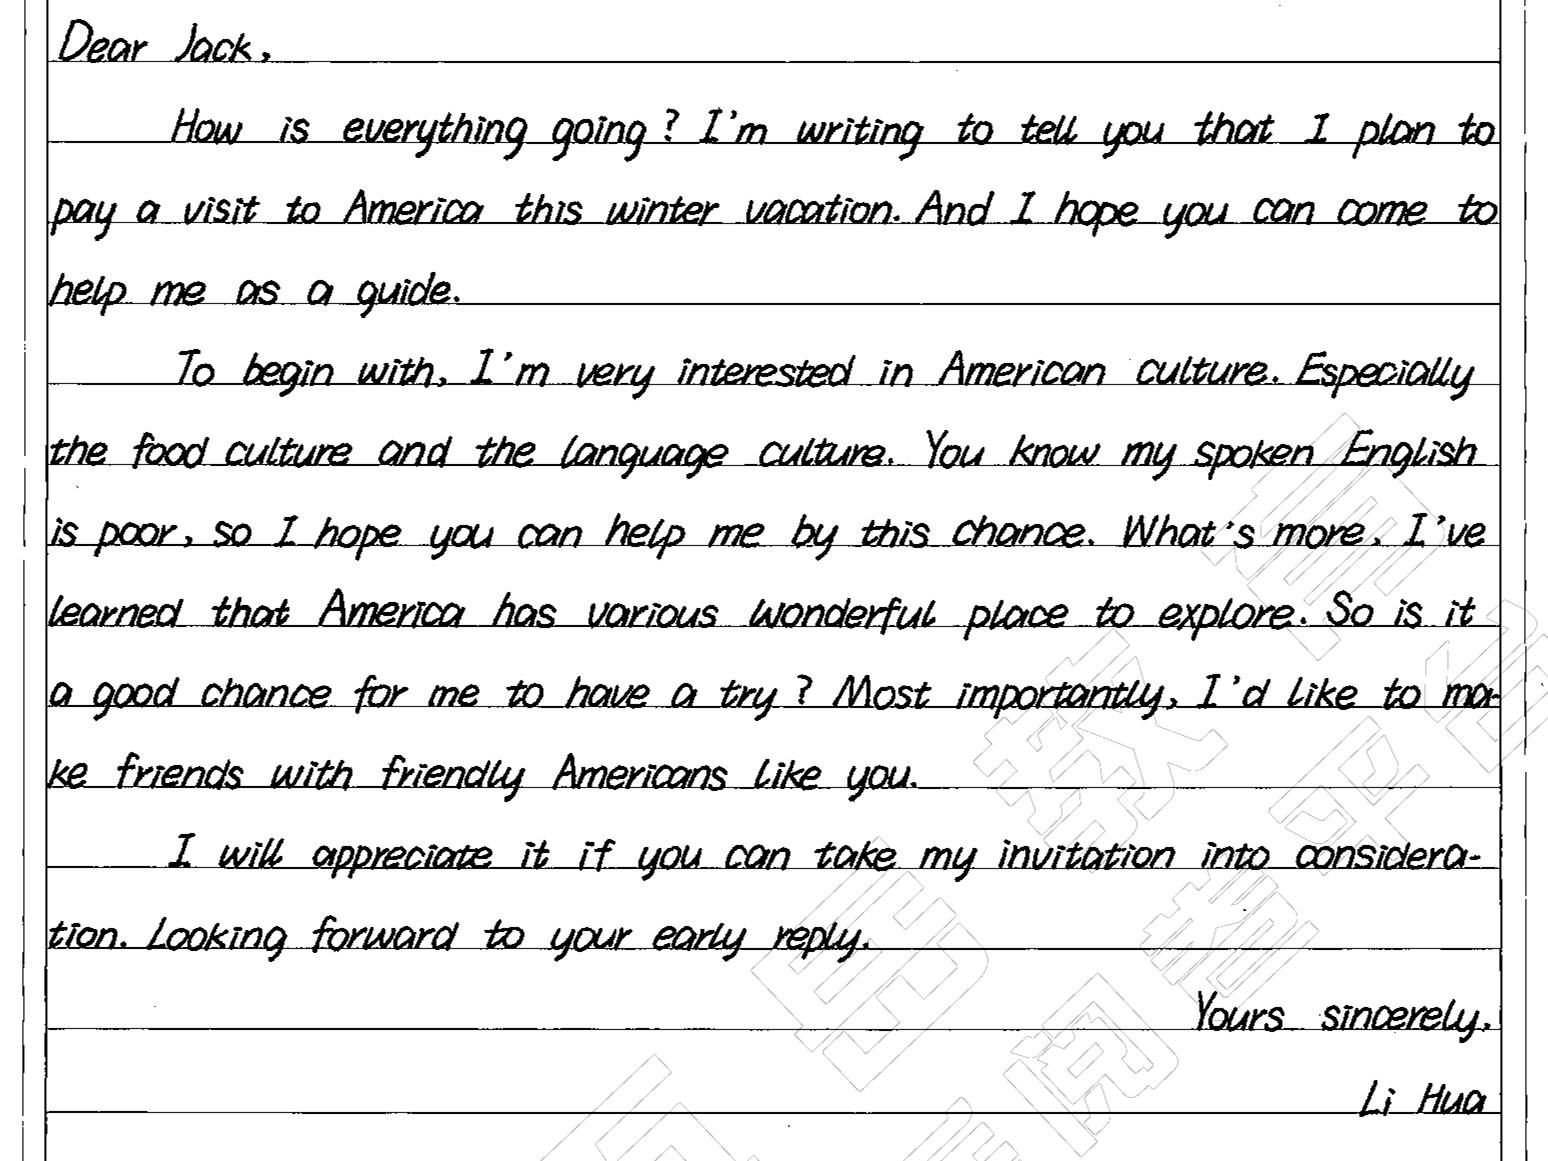 Dear Jack,
How is everything going? I'm writing to tell you that I plan to
pay a visit to America this winter vacation. And I hope you can come to
help me as a guide.
To begin with, I'm very interested in American culture. Especially
the food culture and the language culture. You know my spoken English
is poor, so I hope you can help me by this chance. What's more, I've
learned that America has various wonderful place to explore. So is it
a good chance for me to have a try? Most importantly, I'd like to ma-
ke friends with friendly Americans like you.
I will appreciate it if you can take my invitation into considera-
tion. Looking forward to your early reply.
Yours sincerely,
Li Hua